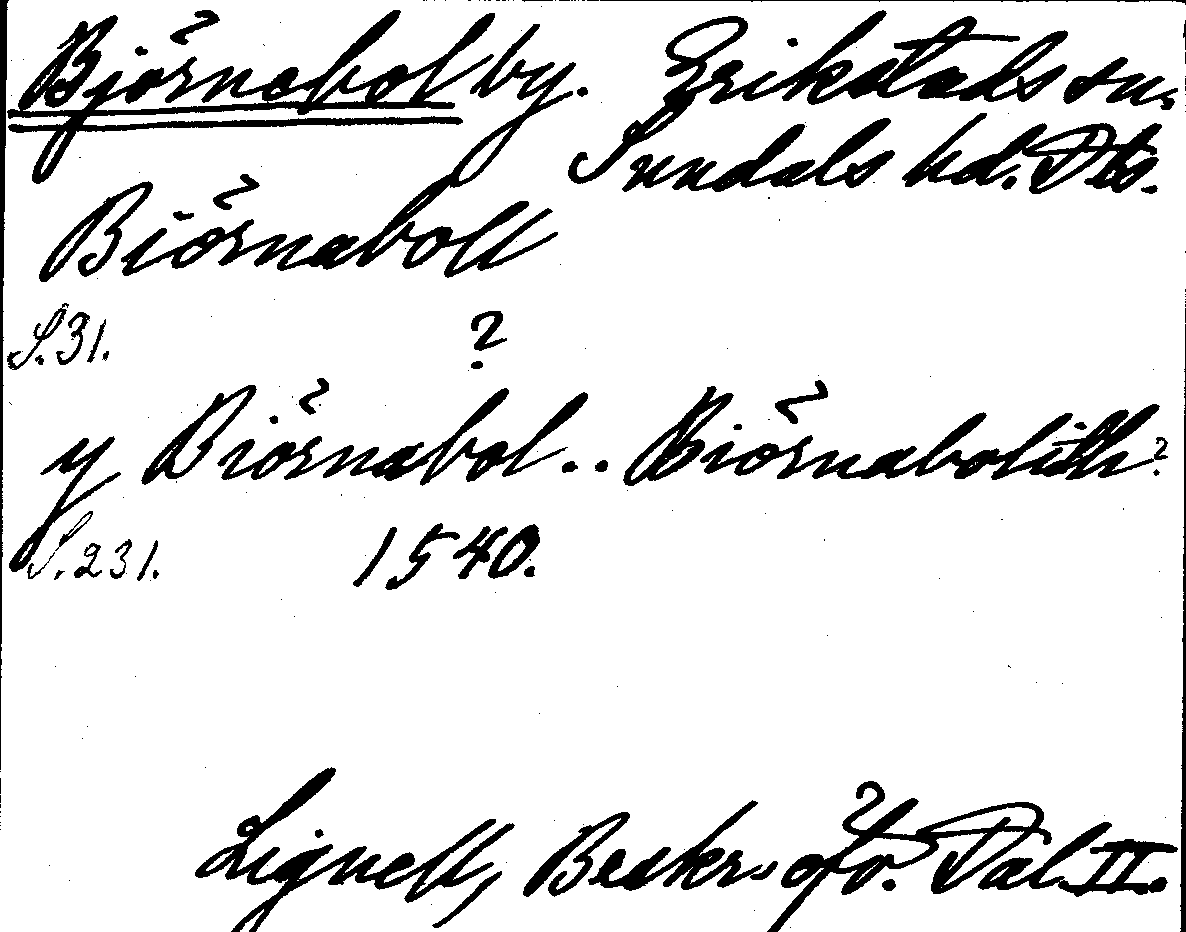 Björnebol by. Erikstads sn.
Sundals hd. Dls.
Biörnaboll
S.31. ?
y Biörnabol.. Biörnabolith?
S.231. 1540.
Lignell, Beskr. öfv. Dal. II.